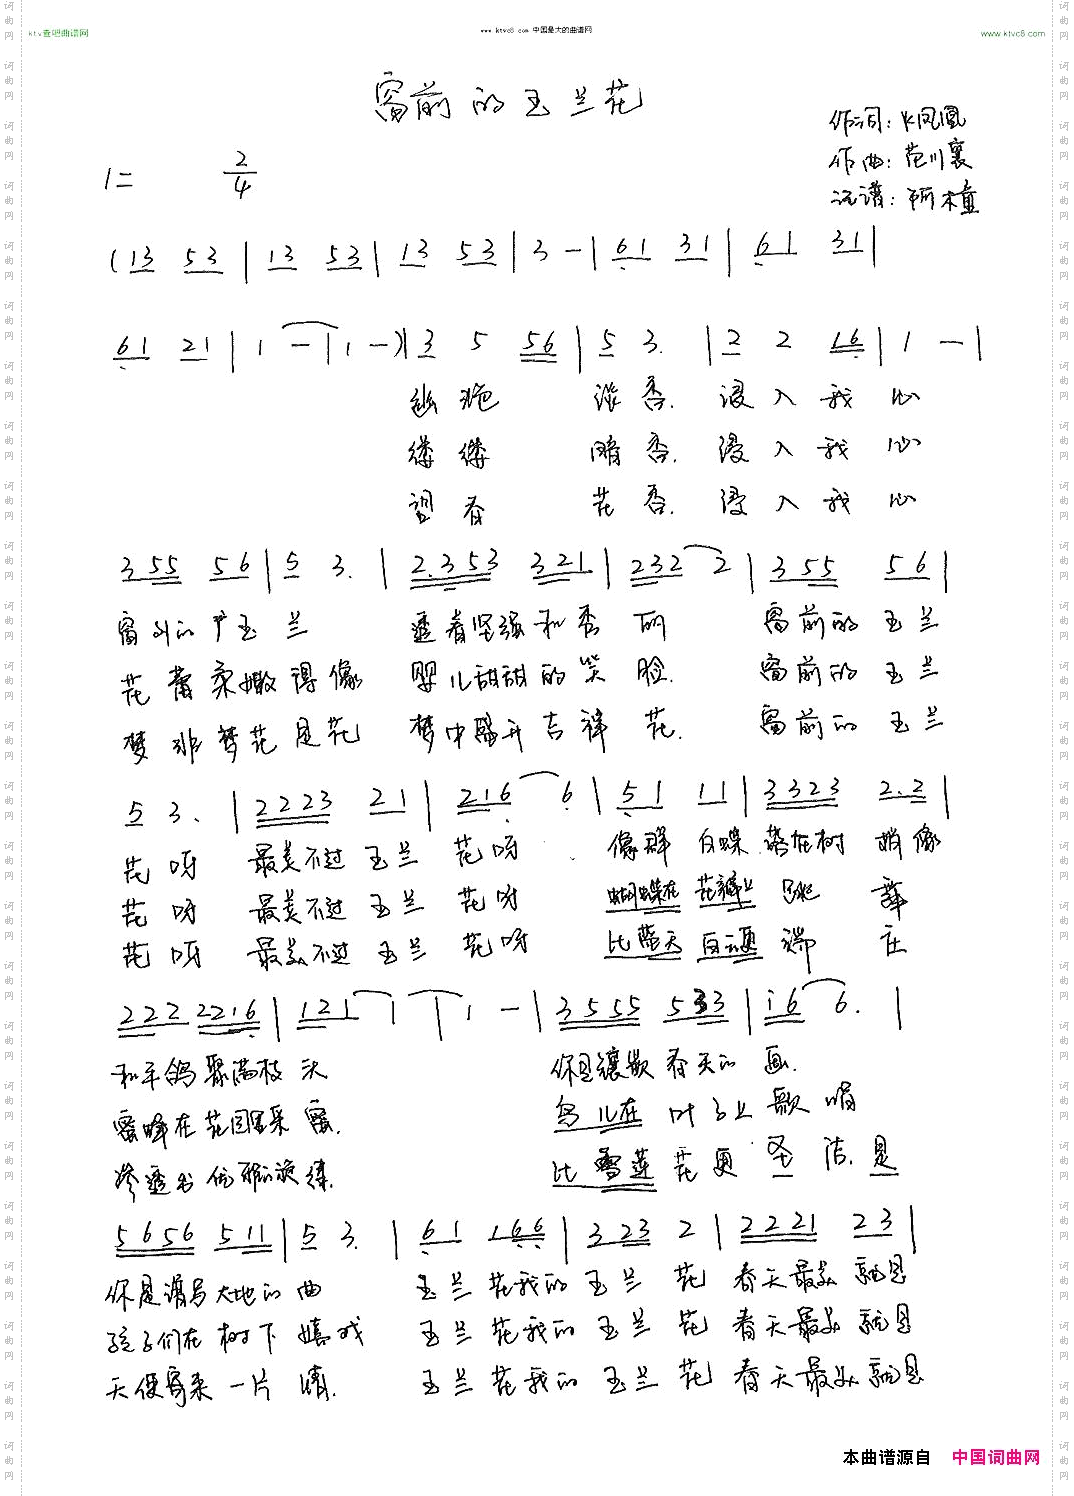 ktv查吧曲谱网 www.ktvc8.com 中国最大的曲谱网 www.ktvc8.com
窗前的玉兰花
作词：凤凰
作曲：范川襄
记谱：阿木童
1= 2/4
(13 53 | 13 53 | 13 53 | 3 - | 61 31 | 61 31 |
61 21 | 1 - | 1 -)| 3 5 56 | 5 3. | 2 2 16 | 1 - |
幽艳 淡香. 浸入我心
缕缕 暗香. 浸入我心
望春 花香. 浸入我心
355 56 | 5 3. | 2.353 321 | 232 2 | 355 56 |
窗外的 玉兰 透着坚强和秀丽 窗前的玉兰
花蕾柔嫩得像 婴儿甜甜的笑脸. 窗前的玉兰
梦非梦花是花 梦中盛开吉祥花. 窗前的玉兰
5 3. | 2223 21 | 216 6 | 51 11 | 3323 2.2 |
花呀 最美不过玉兰花呀 像群白蝶落在树梢像
花呀 最美不过玉兰花呀 蝴蝶在花瓣上跳舞
花呀 最美不过玉兰花呀 比蓝天白云更端庄
222 2216 | 121 1 | 1 - | 3555 533 | i6 6. |
和平鸽聚满枝头 你是镶嵌春天的画.
蜜蜂在花园里采蜜. 鸟儿在叶子上歌唱
渗透出优雅的凝练. 比雪莲花更圣洁.是
5656 511 | 5 3. | 61 166 | 323 2 | 2221 23 |
你是谱写大地的曲 玉兰花我的玉兰花 春天最美就是
孩子们在树下嬉戏 玉兰花我的玉兰花 春天最美就是
天使寄来一片情. 玉兰花我的玉兰花 春天最美就是
本曲谱源自 中国词曲网